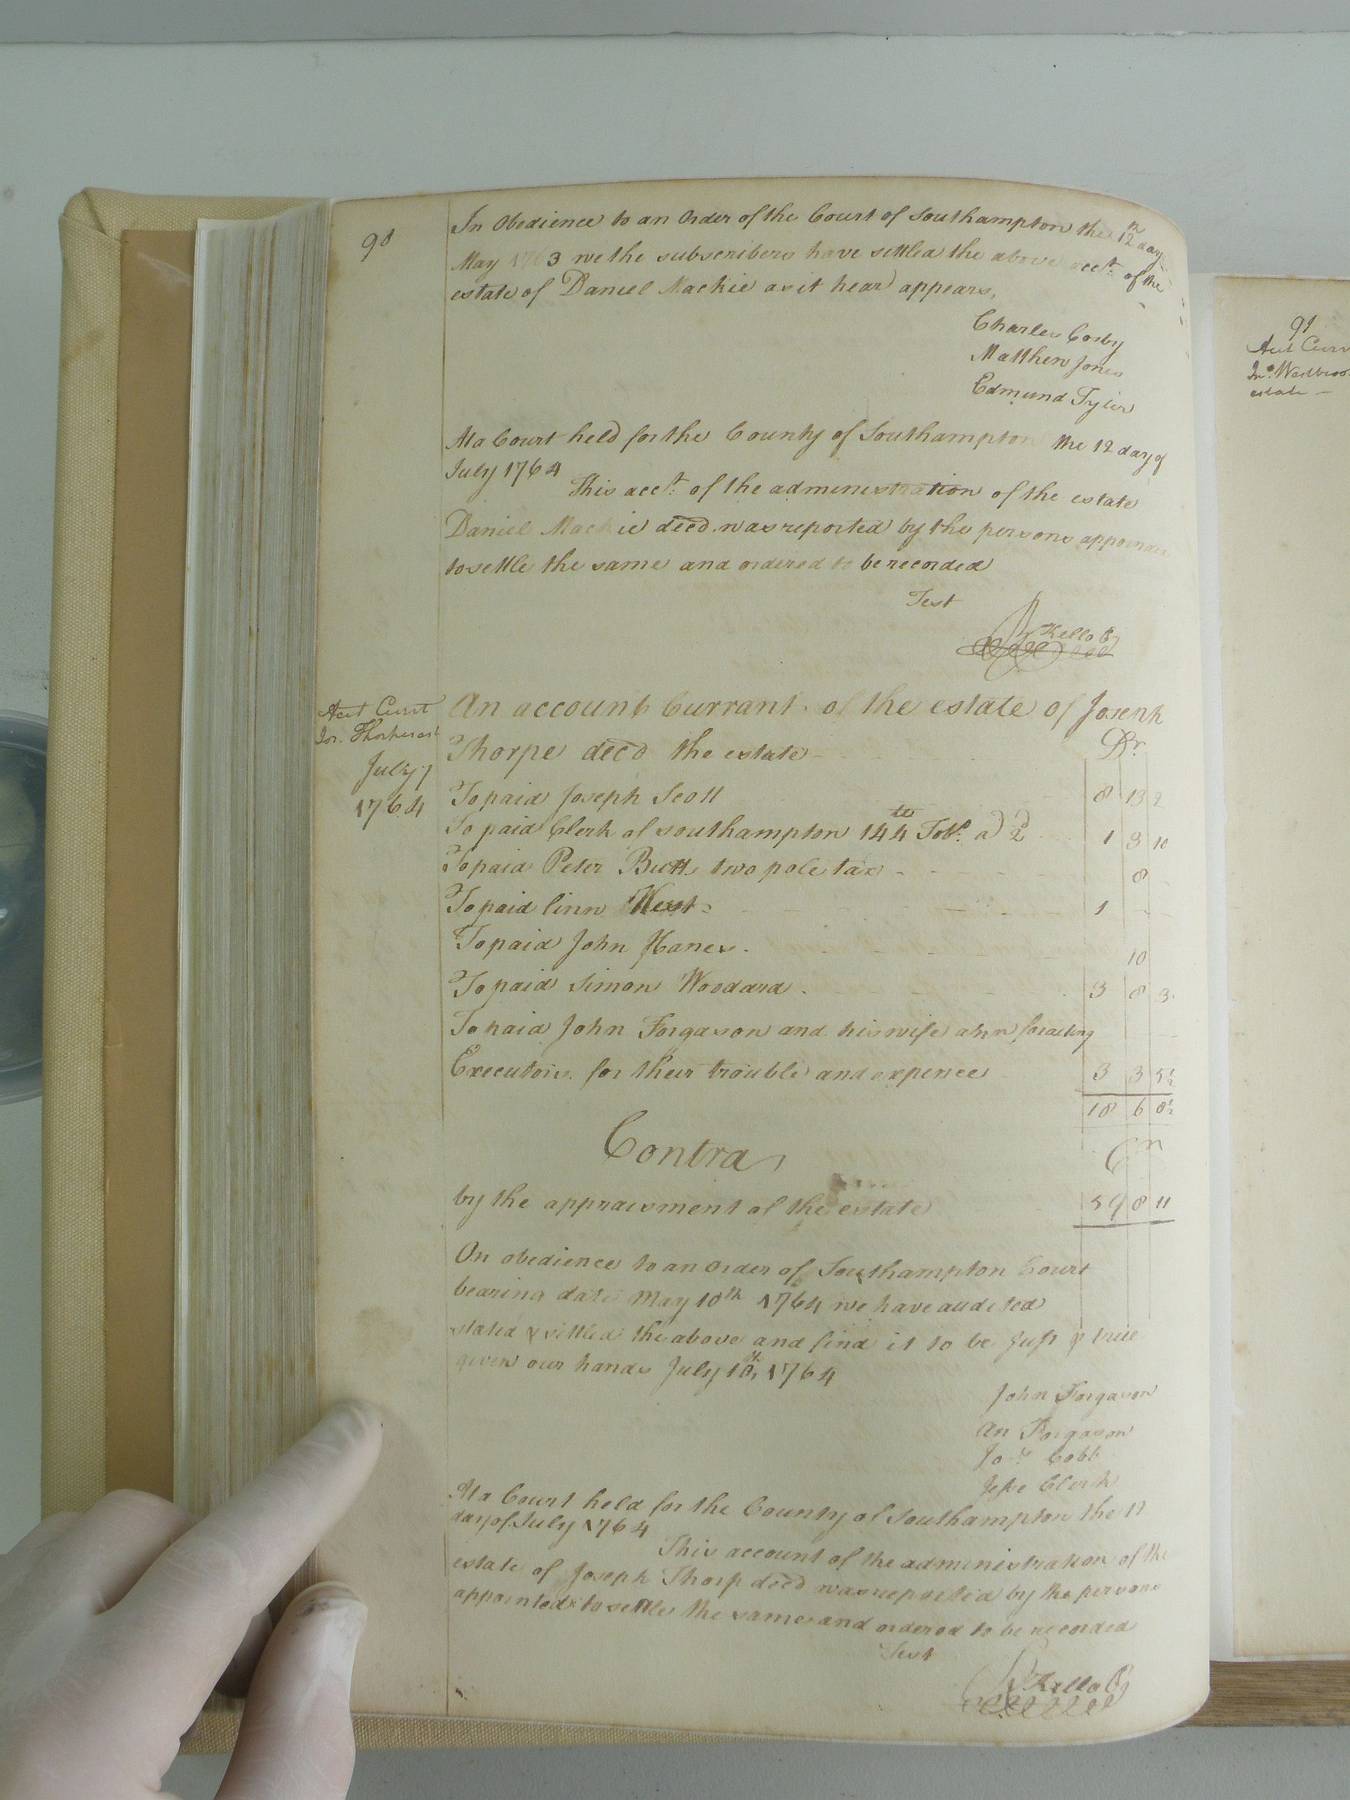 98
In Obedience to an Order of the Court of Southampton the 12th day
May 1763 we the subscribers have settled the above acct. of the
estate of Daniel Mackie as it hear appears,
Charles Cosby
Matthew Jones
Edmund Tyler
At a Court held for the County of Southampton the 12 day of
July 1764
This acct. of the administration of the estate
Daniel Mackie decd. was reported by the persons
to settle the same and ordered to be recorded
Test
Kello
Acct Currt
July
1764
An account Currant of the estate of Joseph
Thorpe decd the estate Dr.
To paid Joseph Scott 8 13 2
To paid Clerk of Southampton 144 to Tobo. a 2d 1 3 10
To paid Peter Butts two pole tax 8
To paid linn West 1
To paid John Hanes 10
To paid Simon Woodard 3 8 3
To paid John Forgason and his wife ahn for acting
Executors for their trouble and expence 3 3 5½
18 6 8½
Contra Cr
by the appraisment of the estate 59 8 11
On obedience to an Order of Southampton Court
bearing date May 10th 1764 we have audited
stated & settled the above and find it to be Just & true
given our hands July 10th, 1764
John Forgason
An Forgason
Jos. Cobb
Jesse Clerk
At a Court held for the County of Southampton the 12
day of July 1764
This account of the administration of the
estate of Joseph Thorp decd was reported by the persons
appointed to settle the same and ordered to be recorded
Test
Kello
98
Acct Curr
Jno. Westbroo
estate